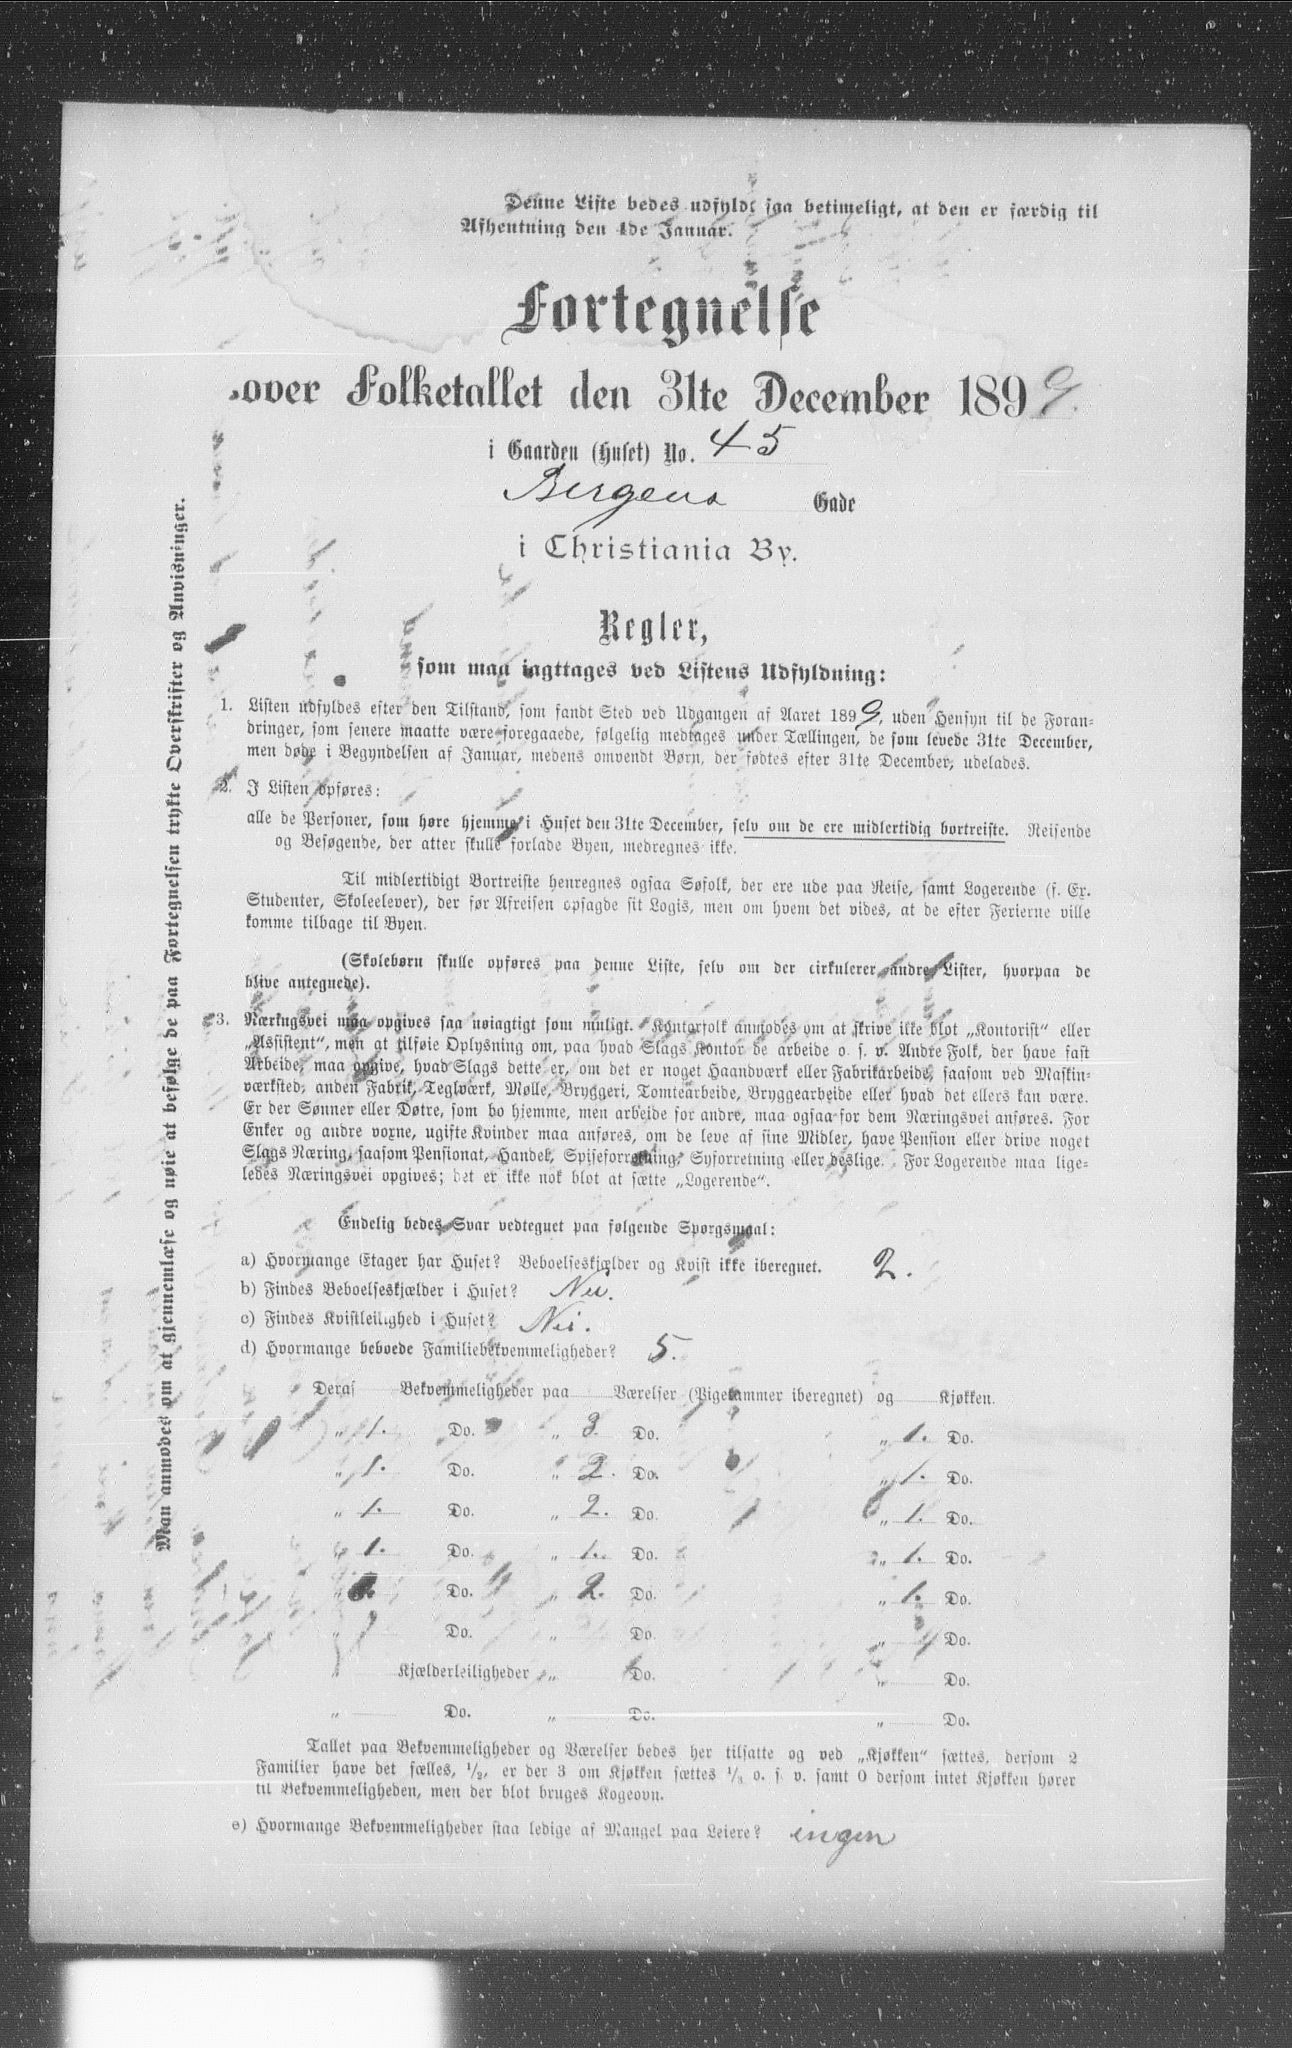 Denne Liste bedes udfyldt saa betimeligt, at den er færdig til
Afhentning den 4de Januar.
Fortegnelse
over Folketallet den 31te December 1899.
i Gaarden (Huset) No. 45
Bergens Gade
i Christiania By.
Regler,
som maa iagttages ved Listens Udfyldning:
1. Listen udfyldes efter den Tilstand, som fandt Sted ved Udgangen af Aaret 1899, uden Hensyn til de Foran-
dringer, som senere maatte være foregaaede, følgelig medtages under Tællingen, de som levede 31te December,
men døde i Begyndelsen af Januar, medens omvendt Børn, der fødtes efter 31te December, udelades.
2. I Listen opføres:
alle de Personer, som høre hjemme i Huset den 31te December, selv om de ere midlertidig bortreiste. Reisende
og Besøgende, der atter skulle forlade Byen, medregnes ikke.
Til midlertidigt Bortreiste henregnes ogsaa Søfolk, der ere ude paa Reise, samt Logerende (f. Ex.
Studenter, Skoleelever), der før Afreisen opsagde sit Logis, men om hvem det vides, at de efter Ferierne ville
komme tilbage til Byen.
(Skolebørn skulle opføres paa denne Liste, selv om der cirkulerer andre Lister, hvorpaa de
blive antegnede).
3. Næringsvei maa opgives saa nøiagtigt som muligt. Kontorfolk anmodes om at skrive ikke blot „Kontorist“ eller
„Assistent“, men at tilføie Oplysning om, paa hvad Slags Kontor de arbeide o. s. v. Andre Folk, der have fast
Arbeide, maa opgive, hvad Slags dette er, om det er noget Haandværk eller Fabrikarbeide, saasom ved Maskin-
værksted, anden Fabrik, Teglværk, Mølle, Bryggeri, Tomtearbeide, Bryggearbeide eller hvad det ellers kan være.
Er der Sønner eller Døtre, som bo hjemme, men arbeide for andre, maa ogsaa for dem Næringsvei anføres. For
Enker og andre voxne, ugifte Kvinder maa anføres, om de leve af sine Midler, have Pension eller drive noget
Slags Næring, saasom Pensionat, Handel, Spiseforretning, Syforretning eller deslige. For Logerende maa lige-
ledes Næringsvei opgives; det er ikke nok blot at sætte „Logerende“.
Endelig bedes Svar vedtegnet paa følgende Spørgsmaal:
a) Hvormange Etager har Huset? Beboelseskjælder og Kvist ikke iberegnet. 2.
b) Findes Beboelseskjælder i Huset? Nei.
c) Findes Kvistleilighed i Huset? Nei.
d) Hvormange beboede Familiebekvemmeligheder? 5.
Deraf Bekvemmeligheder paa Værelser (Pigekammer iberegnet) og Kjøkken.
„ 1. Do. „ 3. Do. „ 1. Do.
„ 1. Do. „ 2. Do. „ 1. Do.
„ 1. Do. „ 2. Do. „ 1. Do.
„ 1. Do. „ 1. Do. „ 1. Do.
„ Do. „ 2. Do. „ 1. Do.
„ Do. „ Do. „ Do.
„ Kjælderleiligheder „ Do. „ Do.
„ Do. „ Do. „ Do.
Tallet paa Bekvemmeligheder og Værelser bedes her tilsatte og ved „Kjøkken“ sættes, dersom 2
Familier have det fælles, 1/2, er der 3 om Kjøkken sættes 1/3 o. s. v. samt 0 dersom intet Kjøkken hører
til Bekvemmeligheden, men der blot bruges Kogeovn.
e) Hvormange Bekvemmeligheder staa ledige af Mangel paa Leiere? ingen
Man anmodes om at gjennemlæse og nøie at befølge de paa Fortegnelsen trykte Overskrifter og Anvisninger.